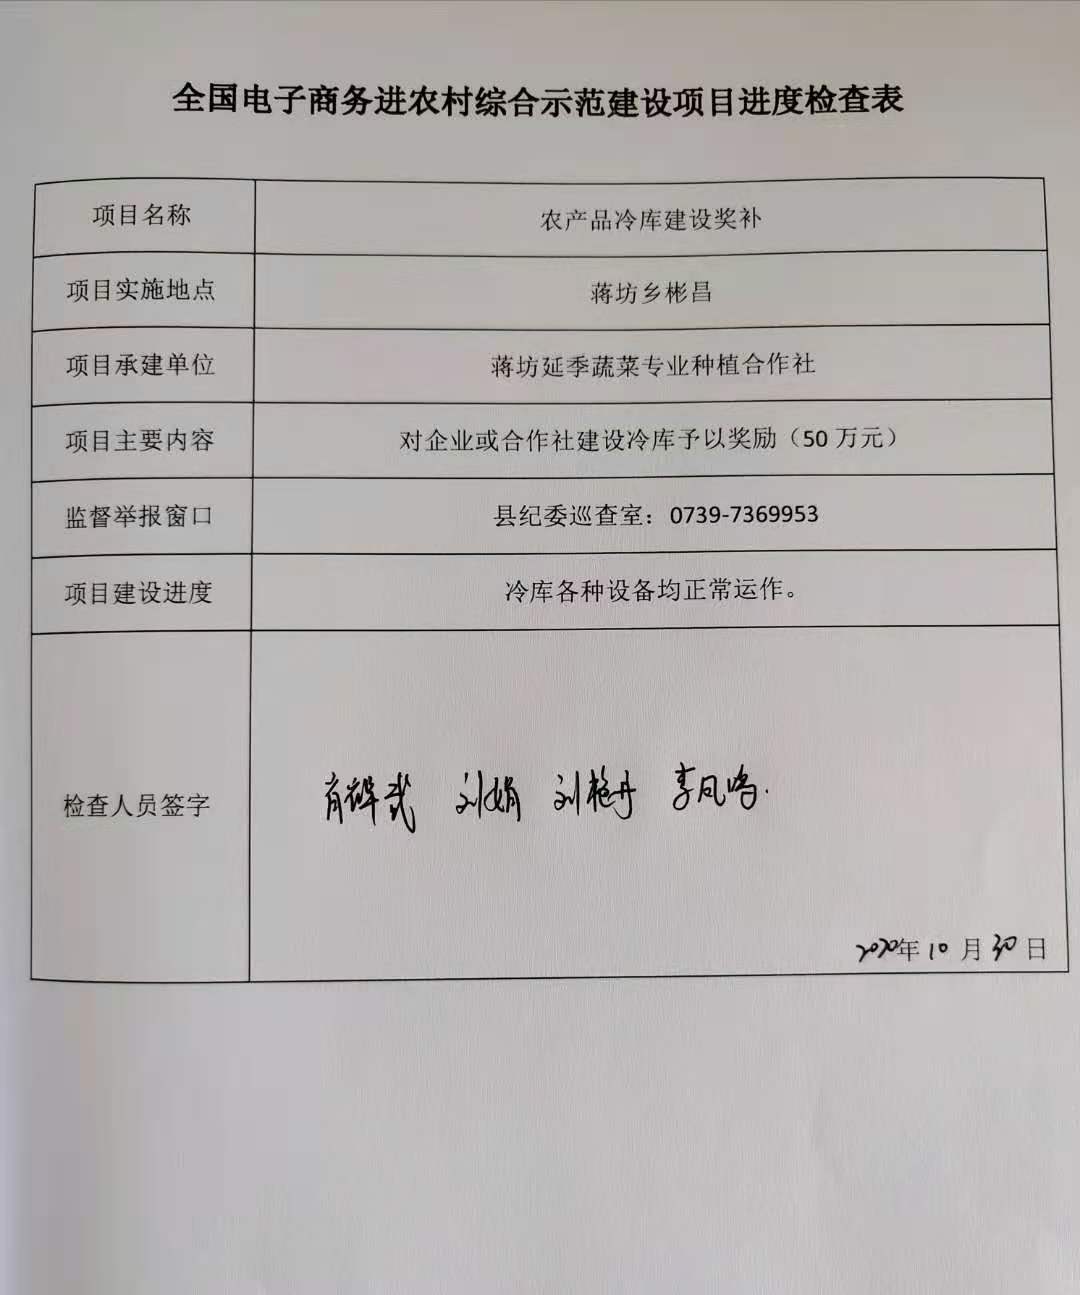 全国电子商务进农村综合示范建设项目进度检查表
项目名称
农产品冷库建设奖补
项目实施地点
蒋坊乡彬昌
项目承建单位
蒋坊延季蔬菜专业种植合作社
项目主要内容
对企业或合作社建设冷库予以奖励（50 万元）
监督举报窗口
县纪委巡查室：0739-7369953
项目建设进度
冷库各种设备均正常运作。
检查人员签字
刘娟 刘艳丹 李凤鸣
2020年 10 月 30 日